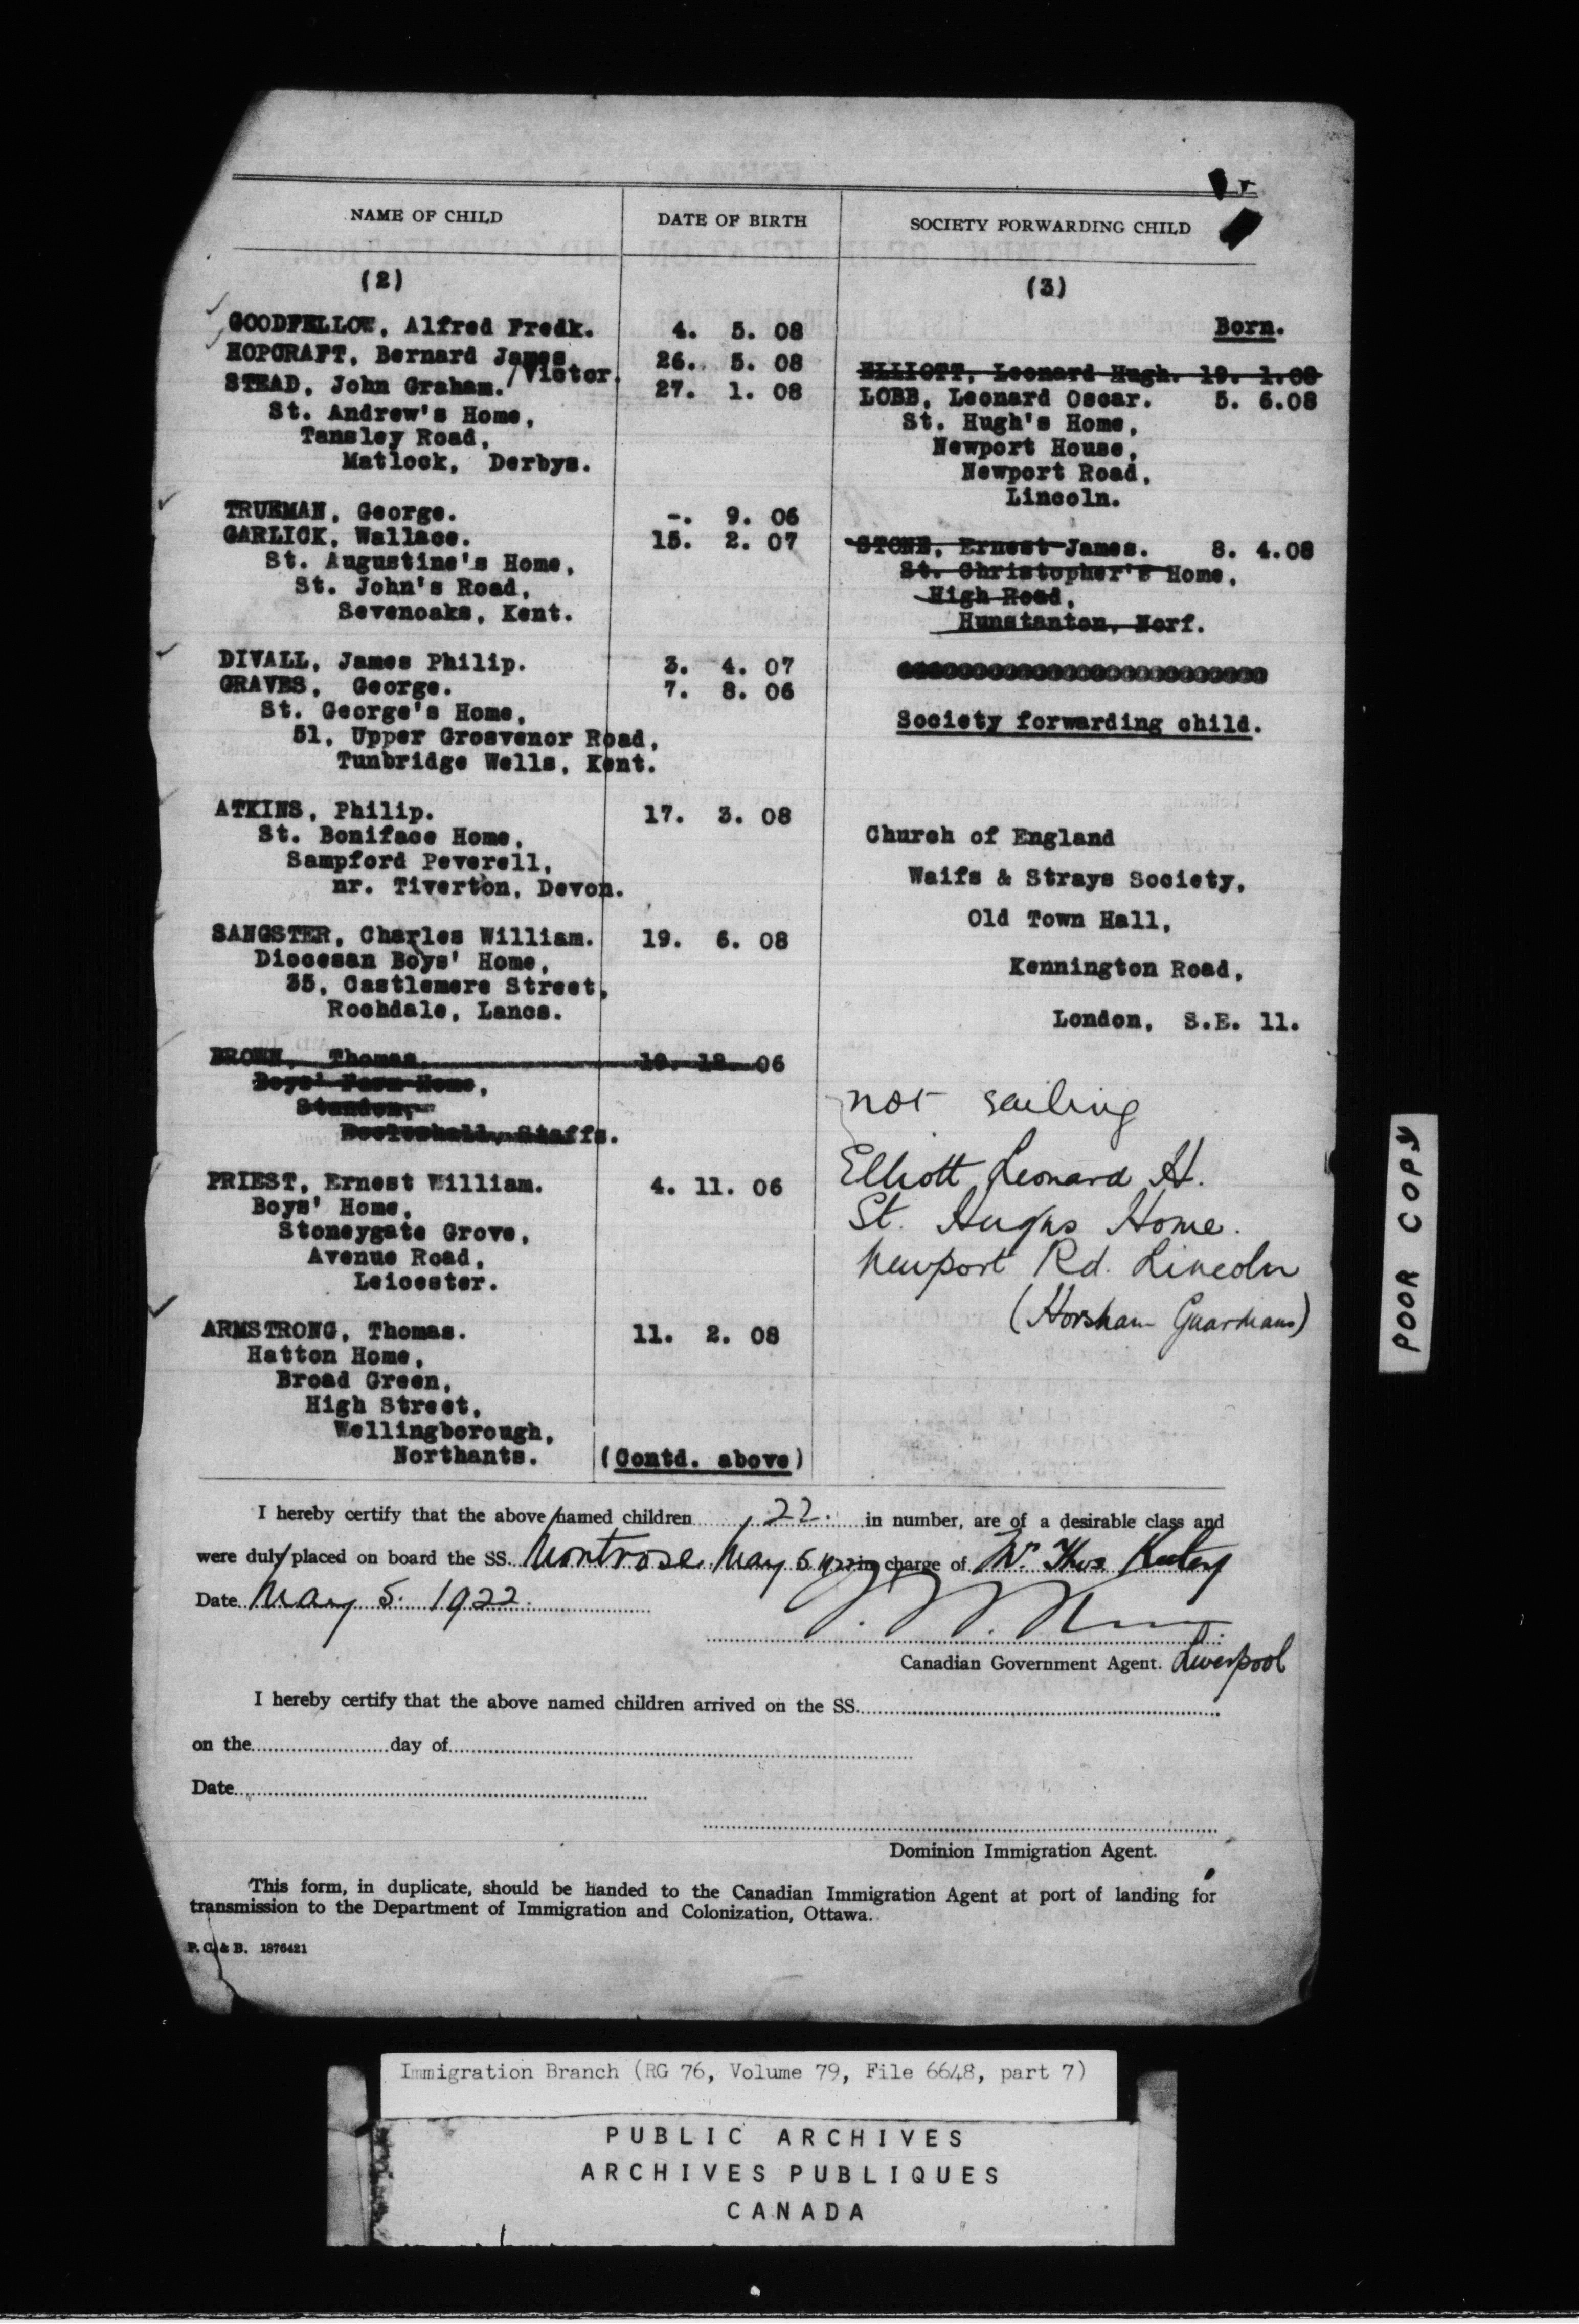 NAME OF CHILD
DATE OF BIRTH
SOCIETY FORWARDING CHILD
(2)
GOODFELLOW, Alfred Fredk. 4. 5. 08
HOPCRAFT, Bernard James 26. 5. 08
/Victor.
STEAD, John Graham. 27. 1. 08
St. Andrew's Home,
Tansley Road,
Matlock, Derbys.
TRUEMAN, George. -. 9. 06
GARLICK, Wallace. 15. 2. 07
St. Augustine's Home,
St. John's Road,
Sevenoaks, Kent.
DIVALL, James Philip. 3. 4. 07
GRAVES, George. 7. 8. 06
St. George's Home,
51, Upper Grosvenor Road,
Tunbridge Wells, Kent.
ATKINS, Philip. 17. 3. 08
St. Boniface Home,
Sampford Peverell,
nr. Tiverton, Devon.
SANGSTER, Charles William. 19. 6. 08
Diocesan Boys' Home,
35, Castlemere Street,
Rochdale, Lancs.
BROWN, Thomas. 19. 12. 06
Boys' Farm Home,
Standon,
Eccleshall, Staffs.
PRIEST, Ernest William. 4. 11. 06
Boys' Home,
Stoneygate Grove,
Avenue Road,
Leicester.
ARMSTRONG, Thomas. 11. 2. 08
Hatton Home,
Broad Green,
High Street,
Wellingborough,
Northants.
(Contd. above)
(3)
Born.
ELLIOTT, Leonard Hugh. 19. 1.08
LOBB, Leonard Oscar. 5. 6.08
St. Hugh's Home,
Newport House,
Newport Road,
Lincoln.
STONE, Ernest James. 8. 4.08
St. Christopher's Home,
High Road,
Hunstanton, Norf.
Society forwarding child.
Church of England
Waifs & Strays Society,
Old Town Hall,
Kennington Road,
London, S.E. 11.
not sailing
Elliott Leonard H.
St. Hughs Home.
Newport Rd. Lincoln
(Horsham Guardians)
I hereby certify that the above named children 22. in number, are of a desirable class and
were duly placed on board the SS. Montrose May 5 1922 in charge of Mr. Thos
Date May 5. 1922.
Canadian Government Agent. Liverpool
I hereby certify that the above named children arrived on the SS.
on the day of
Date
Dominion Immigration Agent.
This form, in duplicate, should be handed to the Canadian Immigration Agent at port of landing for
transmission to the Department of Immigration and Colonization, Ottawa.
P. C. & B. 1876421
POOR COPY
Immigration Branch (RG 76, Volume 79, File 6648, part 7)
PUBLIC ARCHIVES
ARCHIVES PUBLIQUES
CANADA